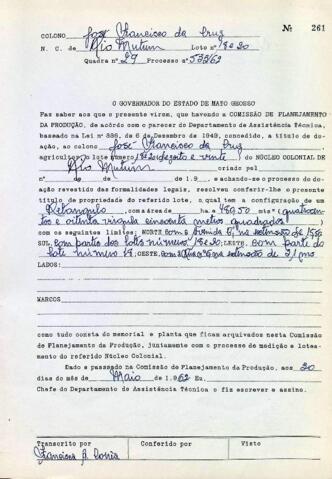 Nº 261
COLONO José Francisco da Cruz
N. C. de Rio Mutum Lote nº 18 e 20
Quadra nº 29 Processo nº 533/62
O GOVERNADOR DO ESTADO DE MATO GROSSO
Faz saber aos que o presente virem, que havendo a COMISSÃO DE PLANEJAMENTO
DA PRODUÇÃO, de acôrdo com o parecer do Departamento de Assistência Técnica,
baseado na Lei nº 336, de 6 de Dezembro de 1949, concedido, a título de do-
ação, ao colono José Francisco da Cruz
agricultor, o lote número (18 e 20 dezoito e vinte) do NÚCLEO COLONIAL DE
Rio Mutum criado pel
nº de de 1.9 e achando-se o processo de do-
ação revestido das formalidades legais, resolveu conferir-lhe o presente
título de propriedade do referido lote, o qual tem a configuração de um
Retangulo, com a área de ha. e 480,50 mts² (quatrocen-
tos e oitenta virgula cincoenta metros quadrados)
com os seguintes limites: NORTE com a Avenida na extensão de
SUL, com partes dos lotes números 18 e 20; LESTE, com parte do
lote número OESTE, com a na extensão de
LADOS:
MARCOS
como tudo consta do memorial e planta que ficam arquivados nesta Comissão
de Planejamento da Produção, juntamente com o processo de medição e lotea-
mento do referido Núcleo Colonial.
Dado e passado na Comissão de Planejamento da Produção, aos 20
dias do mês de Maio de 1.962 Eu,
Chefe do Departamento de Assistência Técnica o fiz escrever e assino.
Transcrito por Conferido por Visto
Francisca A. Corrêa